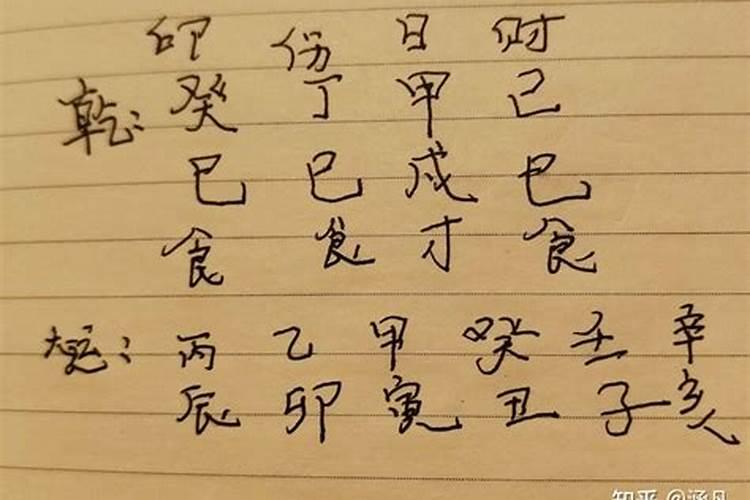 印 伤 日 财
乾: 癸 丁 甲 己
巳 巳 戌 巳
食 食 才 食
大运: 丙 乙 甲 癸 壬 辛
辰 卯 寅 丑 子 亥
知乎 @涵月